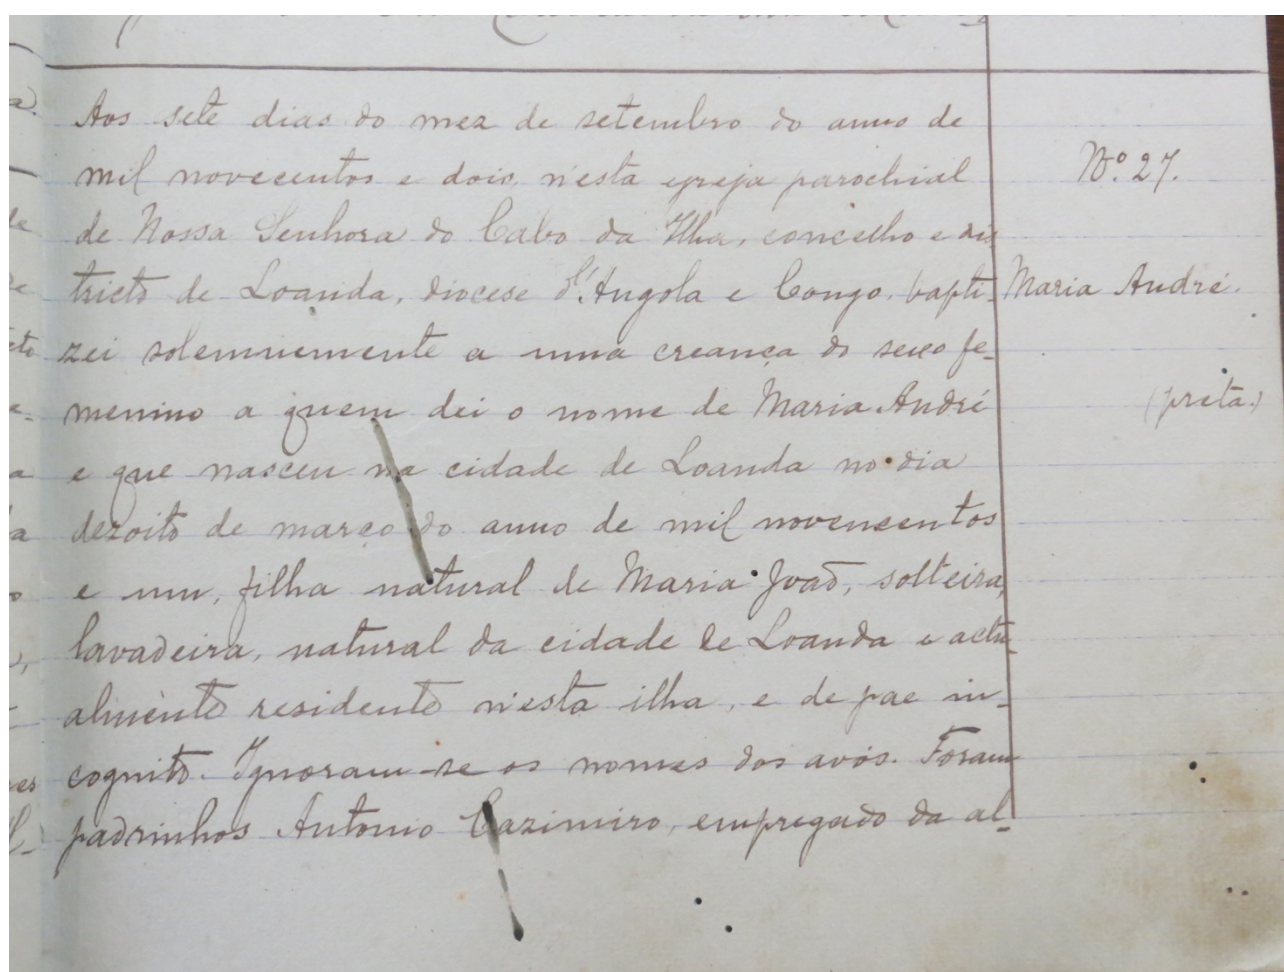 Aos sete dias do mez de setembro do anno de
mil novecentos e dois, n'esta egreja parochial
Nº. 27.
de Nossa Senhora do Cabo da Ilha, concelho e dis
tricto de Loanda, diocese d'Angola e Congo, bapti-
Maria André.
zei solemnemente a uma creança do sexo fe-
menino a quem dei o nome de Maria André
(preta.)
e que nasceu na cidade de Loanda no dia
dezoito de março do anno de mil novencentos
e um, filha natural de Maria João, solteira,
lavadeira, natural da cidade de Loanda e actu-
almente residente n'esta ilha, e de pae in-
cognito. Ignoram-se os nomes dos avós. Foram
padrinhos Antonio Cazimiro, empregado da al-